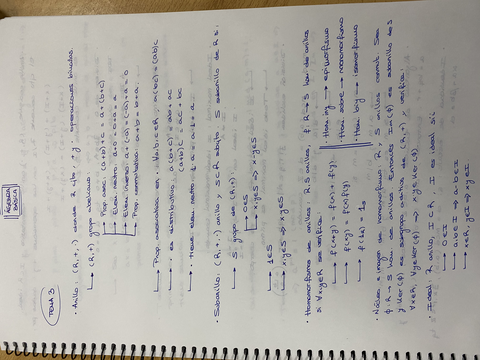 ÁLGEBRA BÁSICA
TEMA 3
· Anillo: (R, +, ·) donde R cjto. + y · operaciones binarias.
→ (R, +) grupo abeliano
→ Prop. asoc: (a+b)+c = a+(b+c)
→ Elem neutro: a+0 = 0+a = a
→ Elem inverso: a+(-a) = (-a)+a = 0
→ Prop. conmutativa: a+b = b+a
→ Prop. asociativa en · ∀a,b,c∈R, a(bc) = (ab)c
→ · es distributiva: a(b+c) = ab+ac
(a+b)c = ac+bc
→ · tiene elem neutro 1 · a = a · 1 = a
· Subanillo: (R, +, ·) anillo y S⊂R subjto S subanillo de R si:
→ S grupo de (R, +)
→ 0∈S
→ x,y∈S ⇒ x-y∈S
→ 1∈S
→ x,y∈S ⇒ x·y∈S
· Homomorfismo de anillos: R, S anillos, f: R → S hom de anillos
si ∀x,y∈R se verifica:
→ f(x+y) = f(x) + f(y)
→ f(xy) = f(x)f(y)
→ f(1R) = 1s
· Hom iny → epimorfismo
· Hom sobre → monomorfismo
· Hom biy → isomorfismo
· Núcleo e imagen de homomorfismo: R y S anillos conmt. Sea
ϕ: R → S hom de anillos. Entonces Im(ϕ) es subanillo de S
y Ker(ϕ) es subgrupo aditivo de (R, +) y verifica:
∀x∈R, ∀y∈Ker(ϕ) ⇒ xy∈Ker(ϕ)
· Ideal: R anillo, I⊂R, I es ideal si:
→ 0∈I
→ a,b∈I ⇒ a-b∈I
→ x∈R, y∈I ⇒ xy∈I